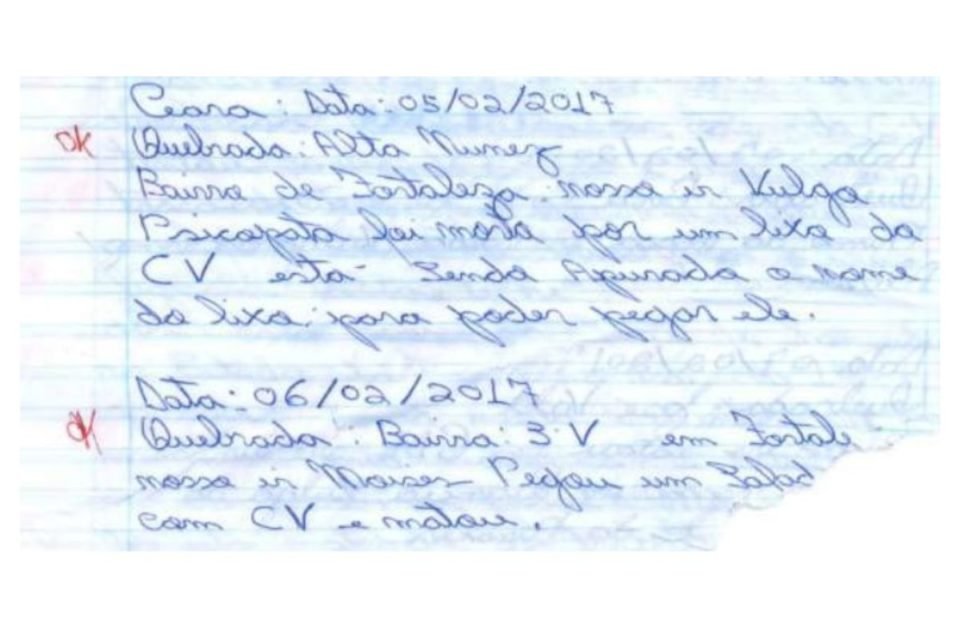 Ceara: Data: 05/02/2017
OK Quebrada: Alto Nunez
Bairro de Fortaleza. nosso ir Vulgo
Psicopata foi morto por um lixo do
CV esta Sendo Apurado o nome
do lixo para poder pegar ele.
Data: 06/02/2017
OK Quebrada: Bairro 3 V em Fortale
nosso ir Moises Pegou um Safad
com CV e matou.